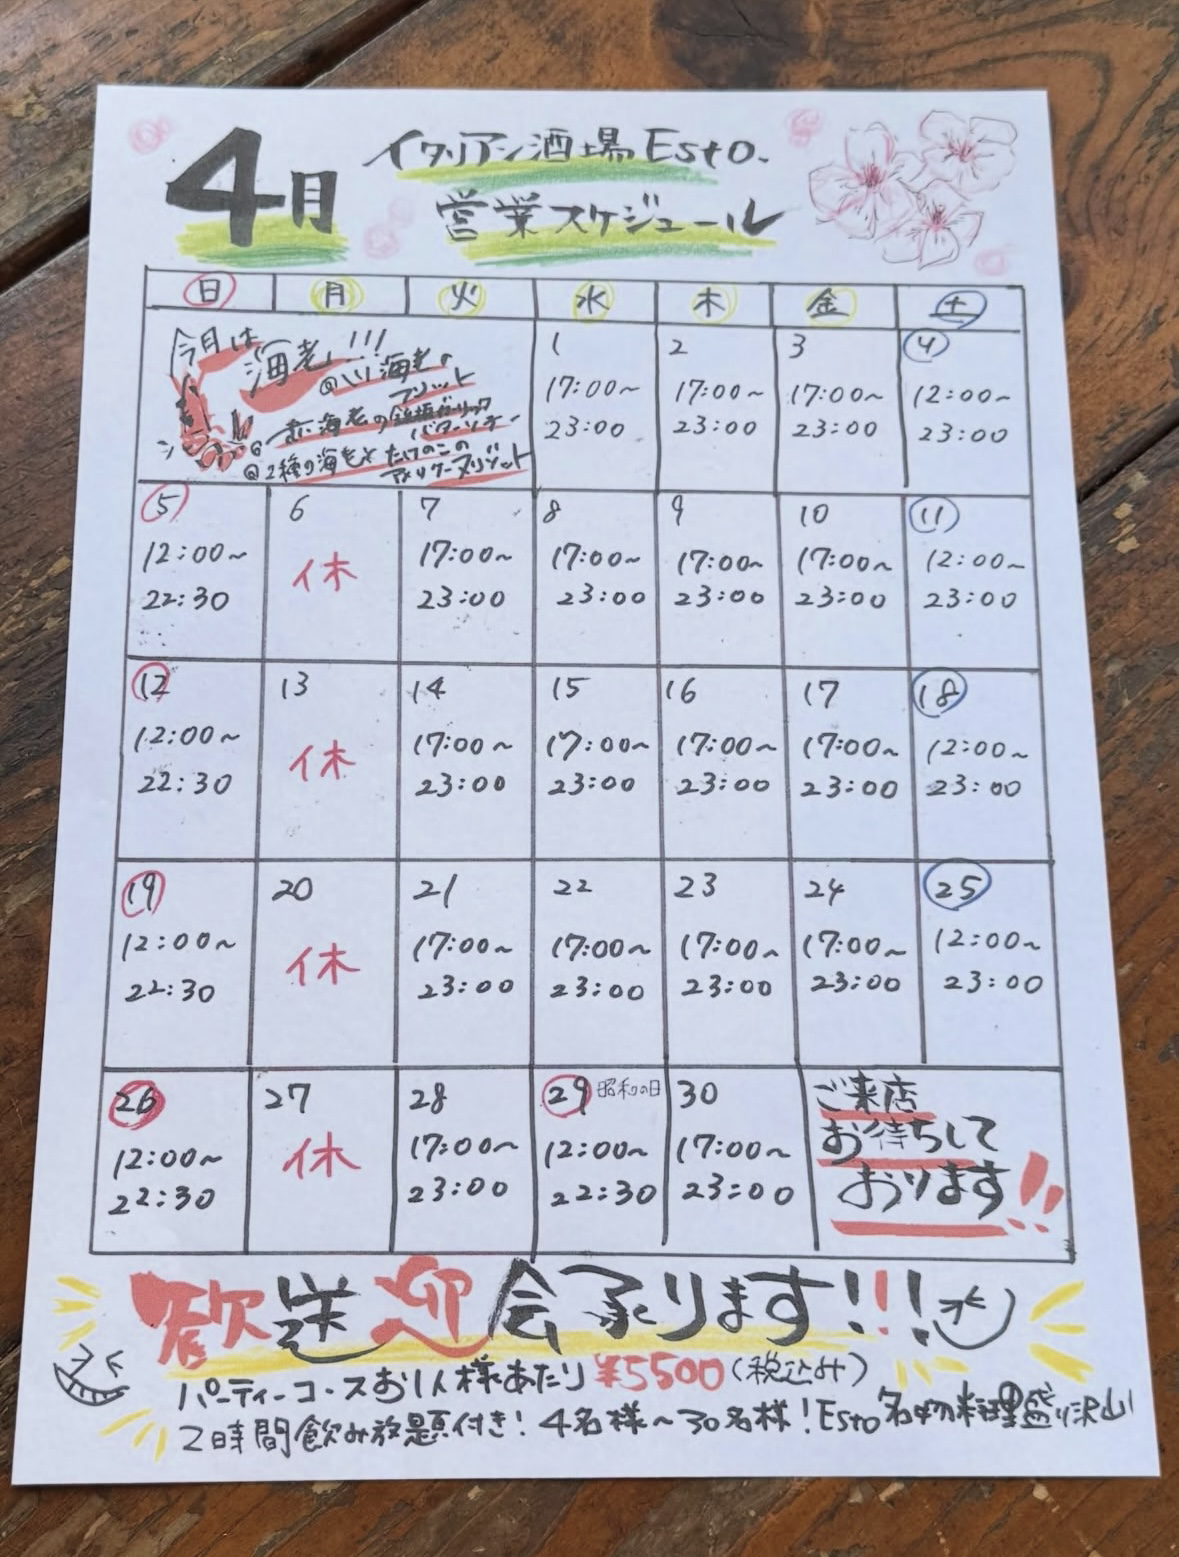 4月
イタリアン酒場Esto.
営業スケジュール
日 月 火 水 木 金 土
今月は
海老!!!
海老の
フリット
赤海老の鉄板ガーリック
バターソテー
2種の海老とたけのこの
アメリケーヌリゾット
1 2 3 4
17:00~ 17:00~ 17:00~ 12:00~
23:00 23:00 23:00 23:00
5 6 7 8 9 10 11
12:00~ 休 17:00~ 17:00~ 17:00~ 17:00~ 12:00~
22:30 23:00 23:00 23:00 23:00 23:00
12 13 14 15 16 17 18
12:00~ 休 17:00~ 17:00~ 17:00~ 17:00~ 12:00~
22:30 23:00 23:00 23:00 23:00 23:00
19 20 21 22 23 24 25
12:00~ 休 17:00~ 17:00~ 17:00~ 17:00~ 12:00~
22:30 23:00 23:00 23:00 23:00 23:00
26 27 28 29 昭和の日 30
12:00~ 休 17:00~ 12:00~ 17:00~
22:30 23:00 22:30 23:00
ご来店
お待ちして
おります!!
歓送迎会承ります!!!
パーティーコースお1人様あたり ¥5500(税込み)
2時間飲み放題付き! 4名様~30名様! Esto名物料理盛り沢山